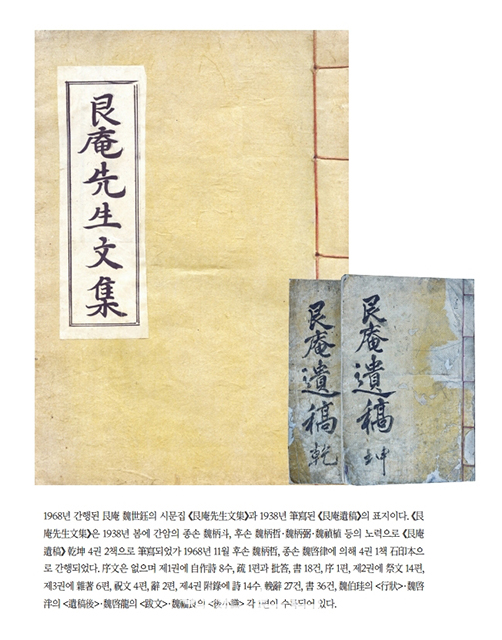 艮庵先生文集
艮庵遺稿 乾
艮庵遺稿 坤
1968년 간행된 艮庵 魏世鈺의 시문집 《艮庵先生文集》과 1938년 筆寫된 《艮庵遺稿》의 표지이다. 《艮
庵先生文集》은 1938년 봄에 간암의 종손 魏柄斗, 후손 魏柄哲·魏柄弼·魏禎植 등의 노력으로 《艮庵
遺稿》 乾坤 4권 2책으로 筆寫되었가 1968년 11월 후손 魏柄哲, 종손 魏啓律에 의해 4권 1책 石印本으
로 간행되었다. 序文은 없으며 제1권에 自作詩 8수, 疏 1편과 批答, 書 18건, 序 1편, 제2권에 祭文 14편,
제3권에 雜著 6편, 祝文 4편, 辭 2편, 제4권 附錄에 詩 14수·輓辭 27건, 書 36건, 魏伯珪의 <行狀>·魏啓
泮의 <遺稿後>·魏啓龍의 <跋文>· 각 1편이 수록되어 있다.